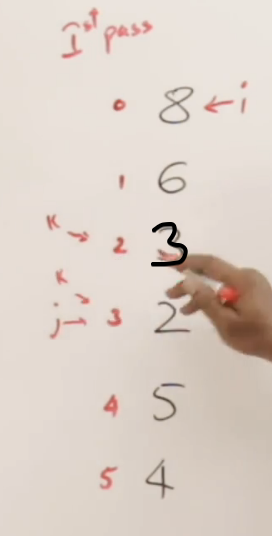 Ist pass
0 8 ← i
1 6
K → 2 3
K →
j → 3 2
4 5
5 4